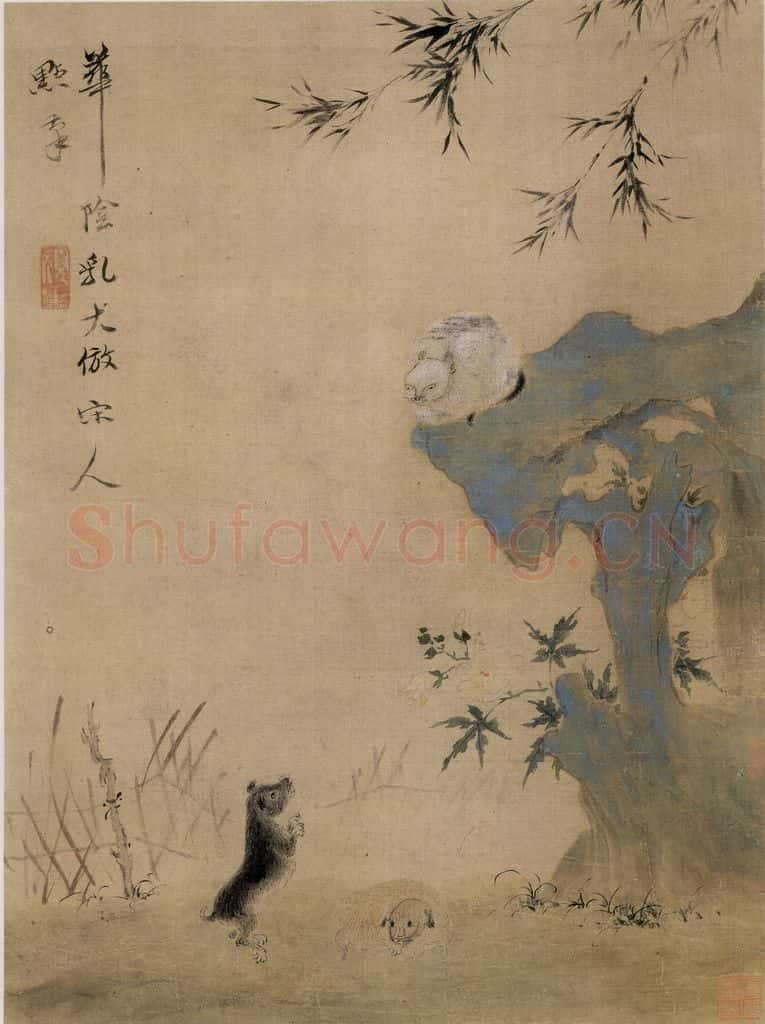 華陰乳犬倣宋人
點筆
Shufawang.CN